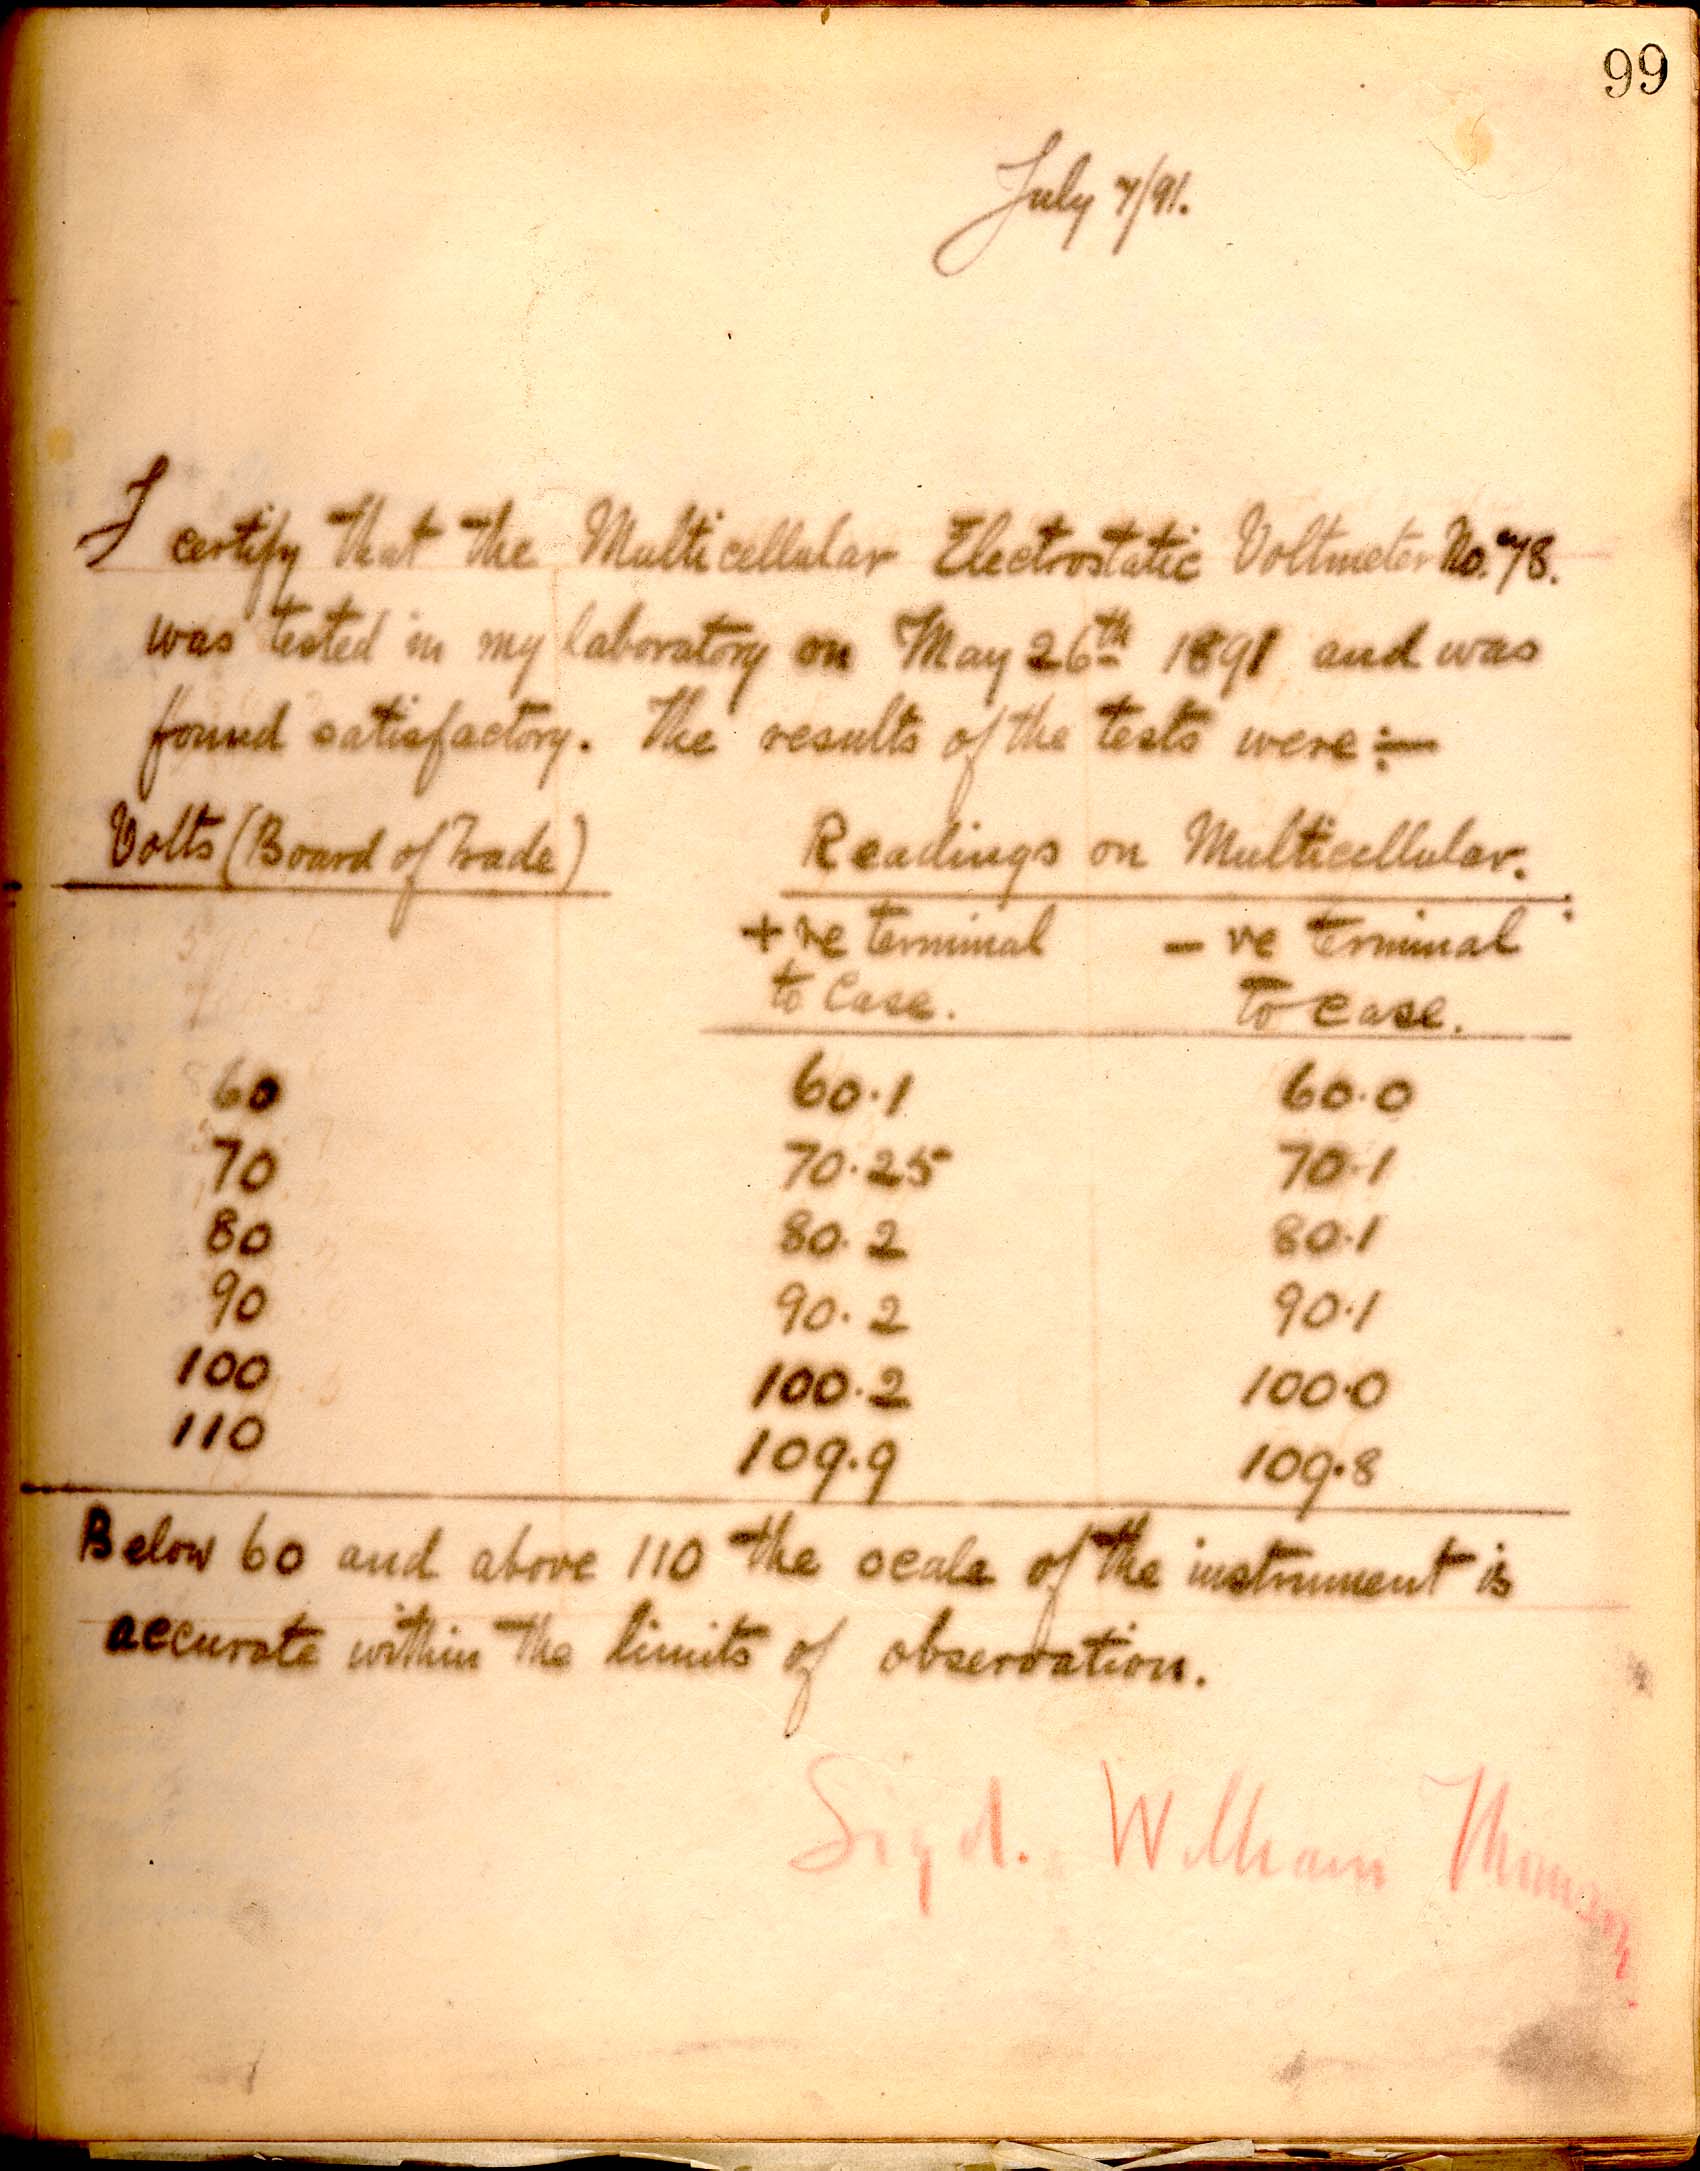 99
July 7/91.
I certify that the Multicellular Electrostatic Voltmeter No. 78.
was tested in my laboratory on May 26th 1891 and was
found satisfactory. The results of the tests were:—
Volts (Board of Trade) Readings on Multicellular.
+ve terminal - ve terminal
to Case. to case.
60 60.1 60.0
70 70.25 70.1
80 80.2 80.1
90 90.2 90.1
100 100.2 100.0
110 109.9 109.8
Below 60 and above 110 the scale of the instrument is
accurate within the limits of observation.
Sigd. William Thomson.